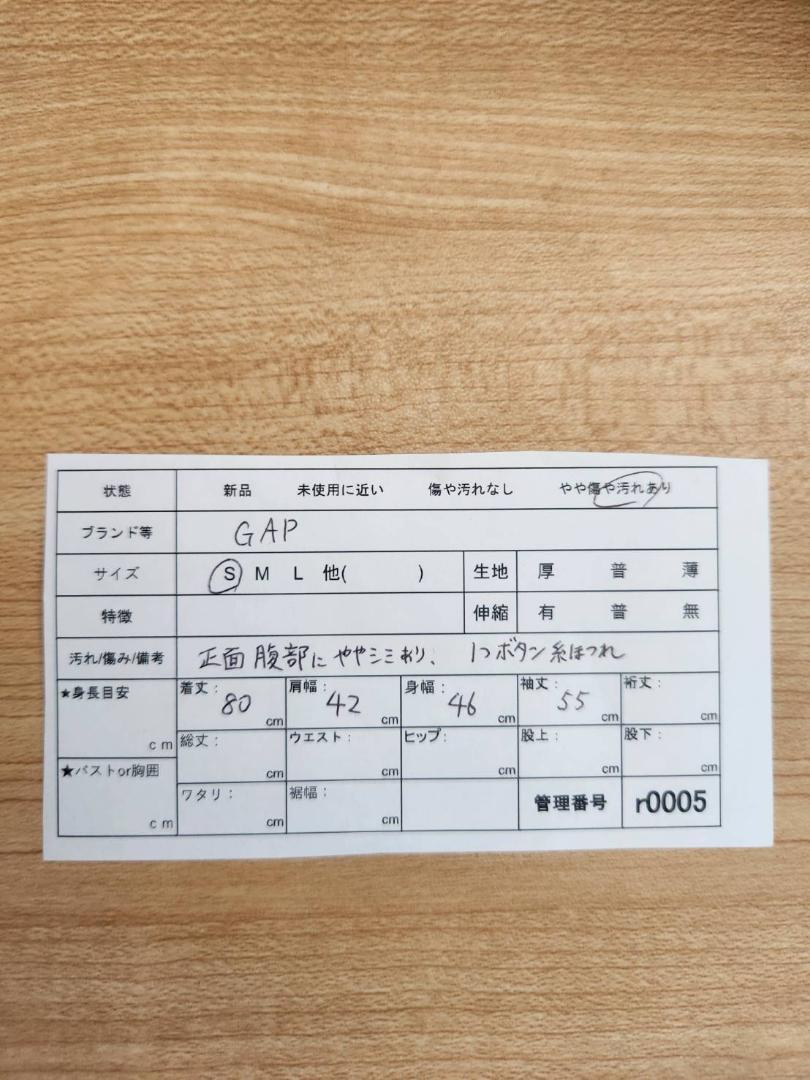 状態 新品 未使用に近い 傷や汚れなし やや傷や汚れあり
ブランド等 GAP
サイズ S M L 他( ) 生地 厚 普 薄
特徴 伸縮 有 普 無
汚れ/傷み/備考 正面腹部にややシミあり、 1つボタン糸ほつれ
★身長目安 cm 着丈: 80 cm 肩幅: 42 cm 身幅: 46 cm 袖丈: 55 cm 裄丈: cm
総丈: cm ウエスト: cm ヒップ: cm 股上: cm 股下: cm
★バストor胸囲 cm ワタリ: cm 裾幅: cm 管理番号 r0005